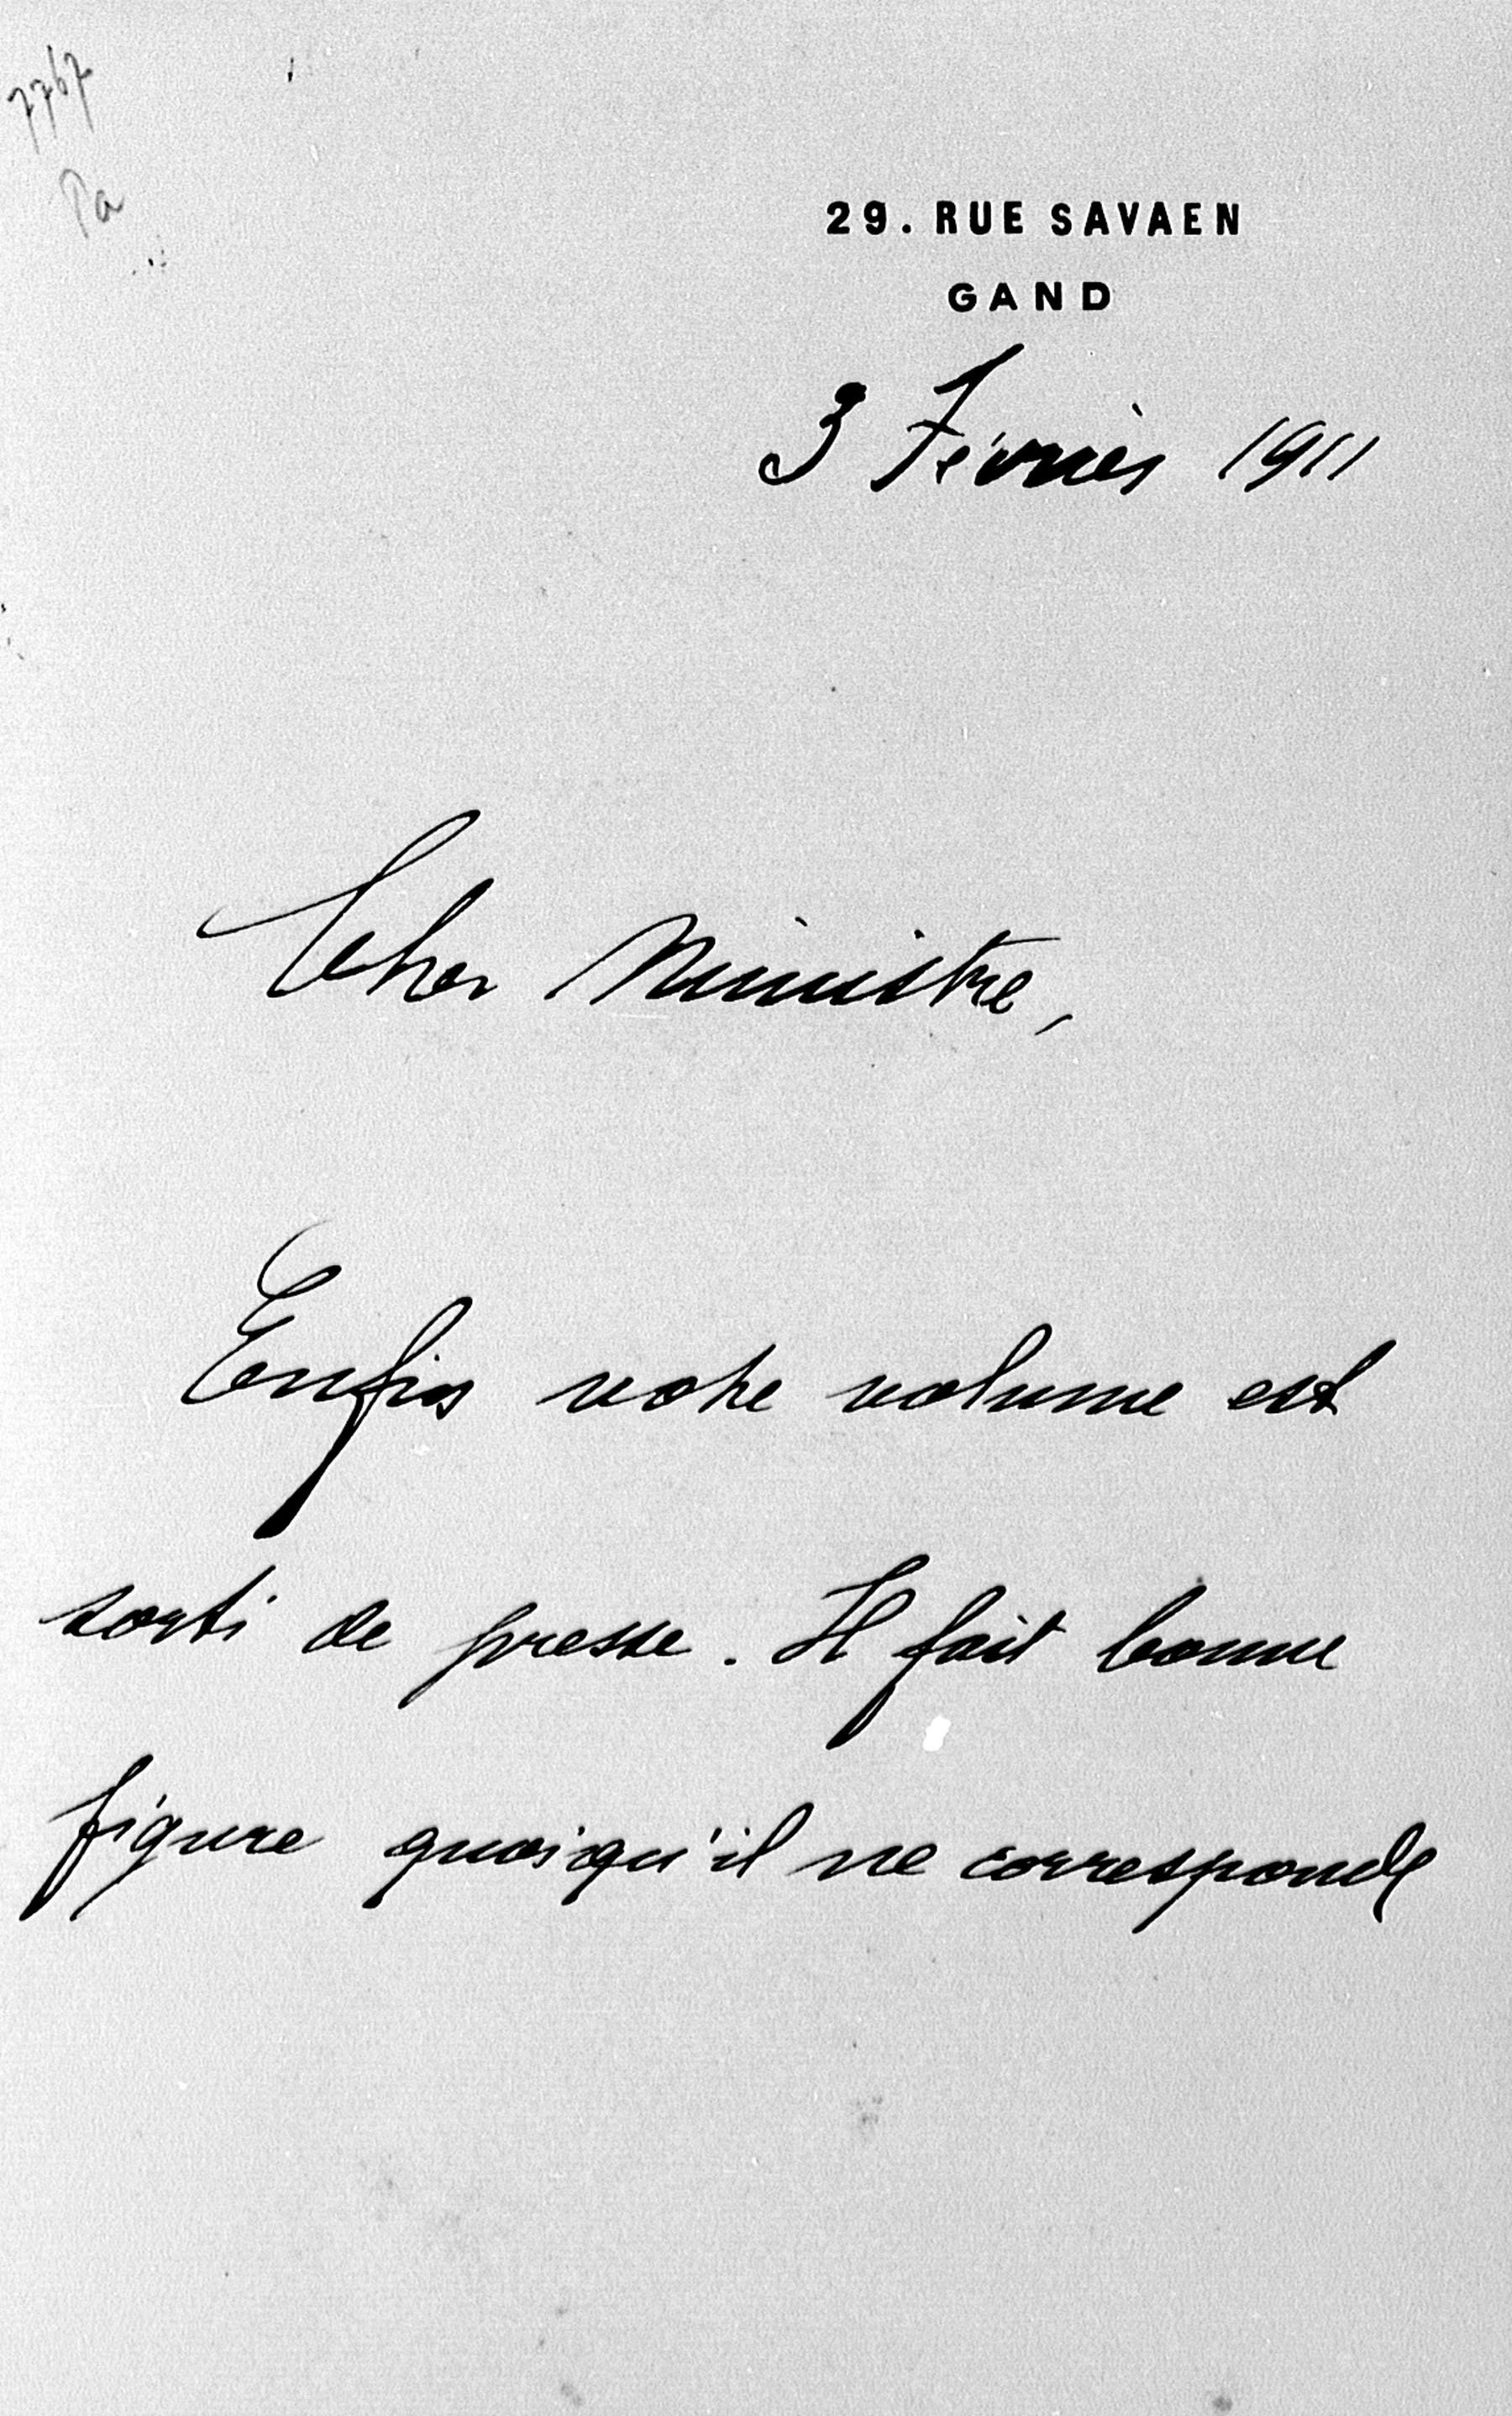 7767
Pa
29. RUE SAVAEN
GAND
3 Février 1911
Cher Ministre,
Enfin votre volume est
sorti de presse. Il fait bonne
figure quoiqu'il ne corresponde